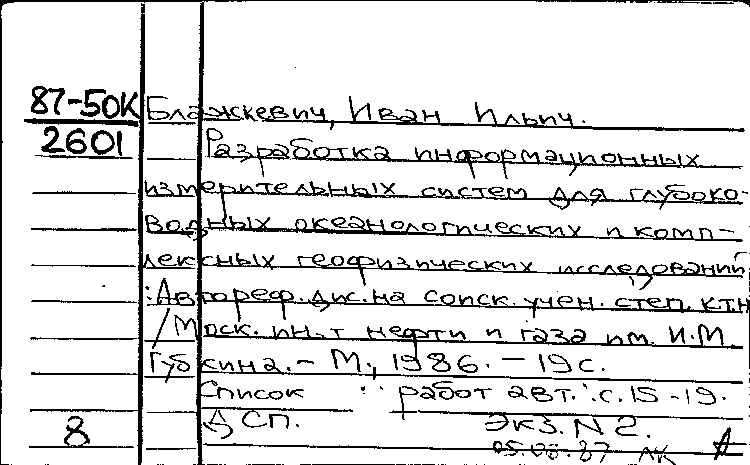 87-50К Блажкевич, Иван Ильич.
2601 Разработка информационных
измерительных систем для глубоко-
водных океанологических и комп-
лексных геофизических исследований
: Автореф. дис. на соиск. учен. степ. к.т.н
/ Моск. ин-т нефти и газа им. И.М.
Губкина. - М., 1986. - 19 с.
Список работ авт.: с. 15-19.
8 ДСП. Экз. N 2.
87 ЛК